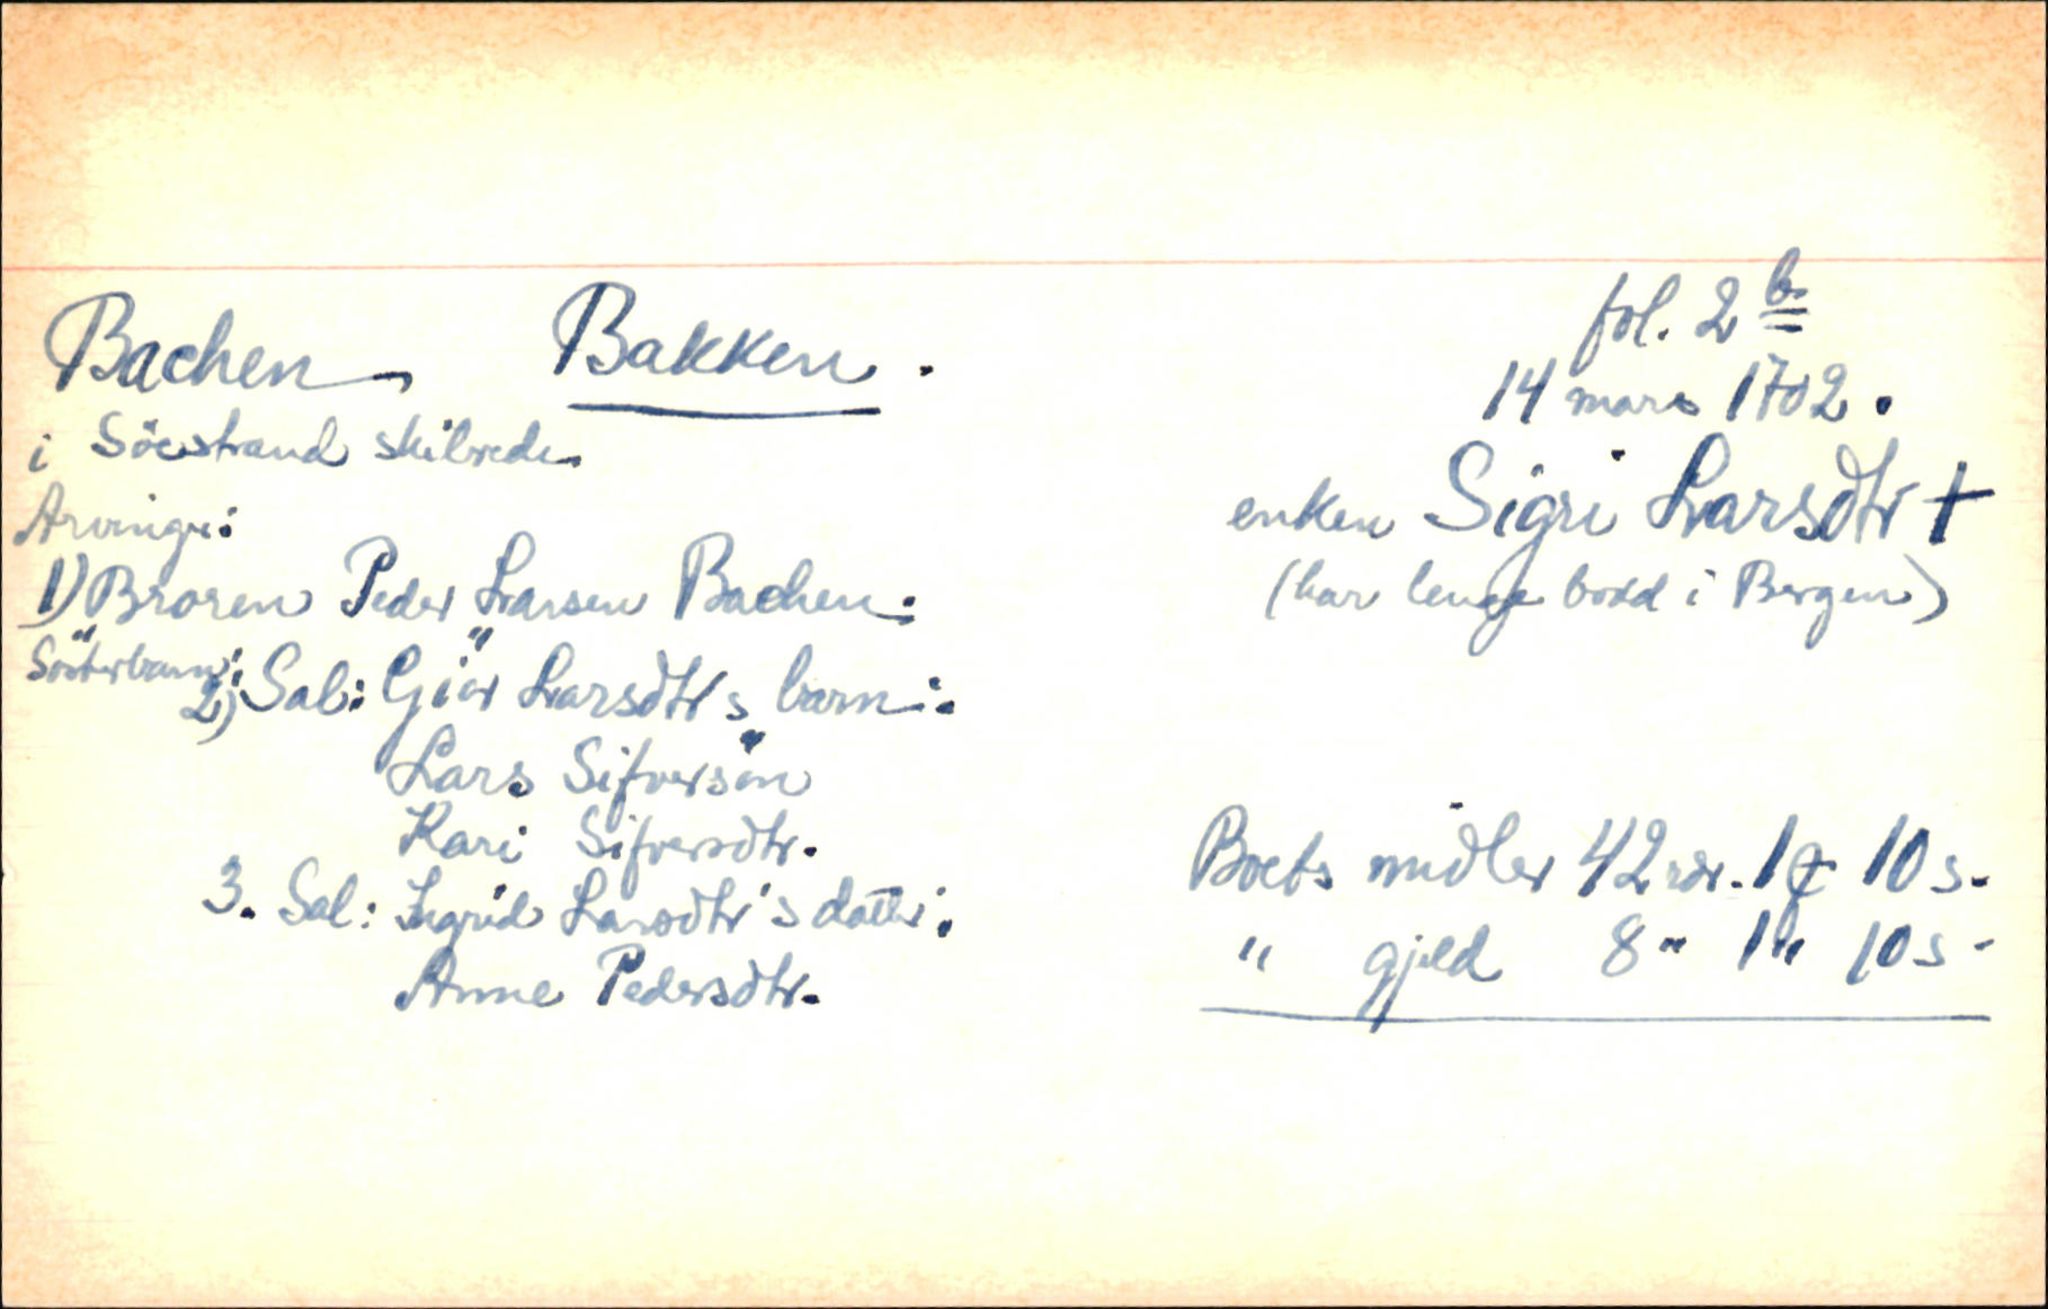 Bachen Bakken.
fol. 2 b.
14 mars 1702.
i Söestrand skibrede.
enken Sigri Larsdtr †
Arvinger:
(har lenge bodd i Bergen)
1) Broren Peder Larsen Bachen:
Sösterbarn:
2) Sal: Giör Larsdtr's barn:
Lars Sifversön
Kari Sifversdtr.
Boets midler 42 rdr. 1 ₰ 10 s.
3. Sal: Ingrid Larsdtr's datter:
" gjeld 8 " 1 " 10 s -
Anne Pedersdtr.